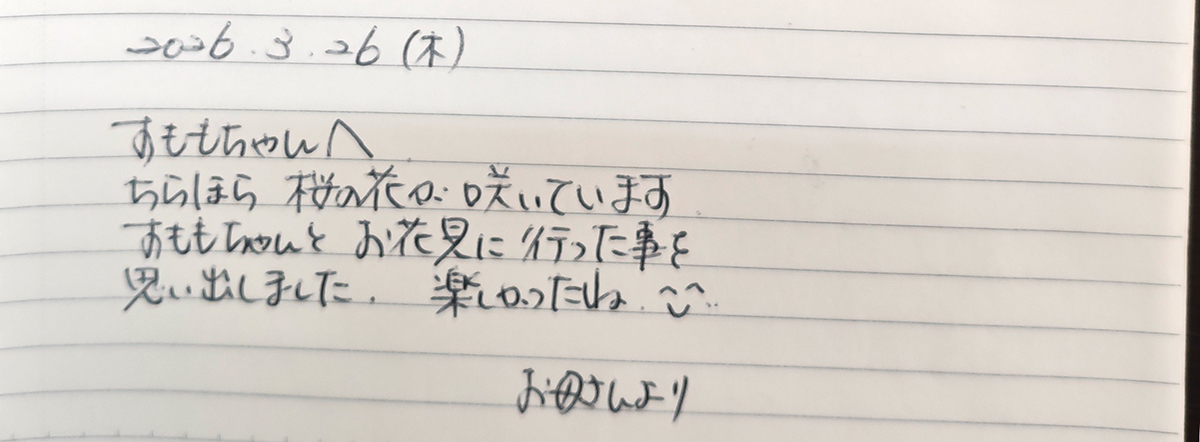 2026.3.26(木)
すももちゃんへ
ちらほら 桜の花が咲いています
すももちゃんと お花見に行った事を
思い出しました. 楽しかったね.
お母さんより